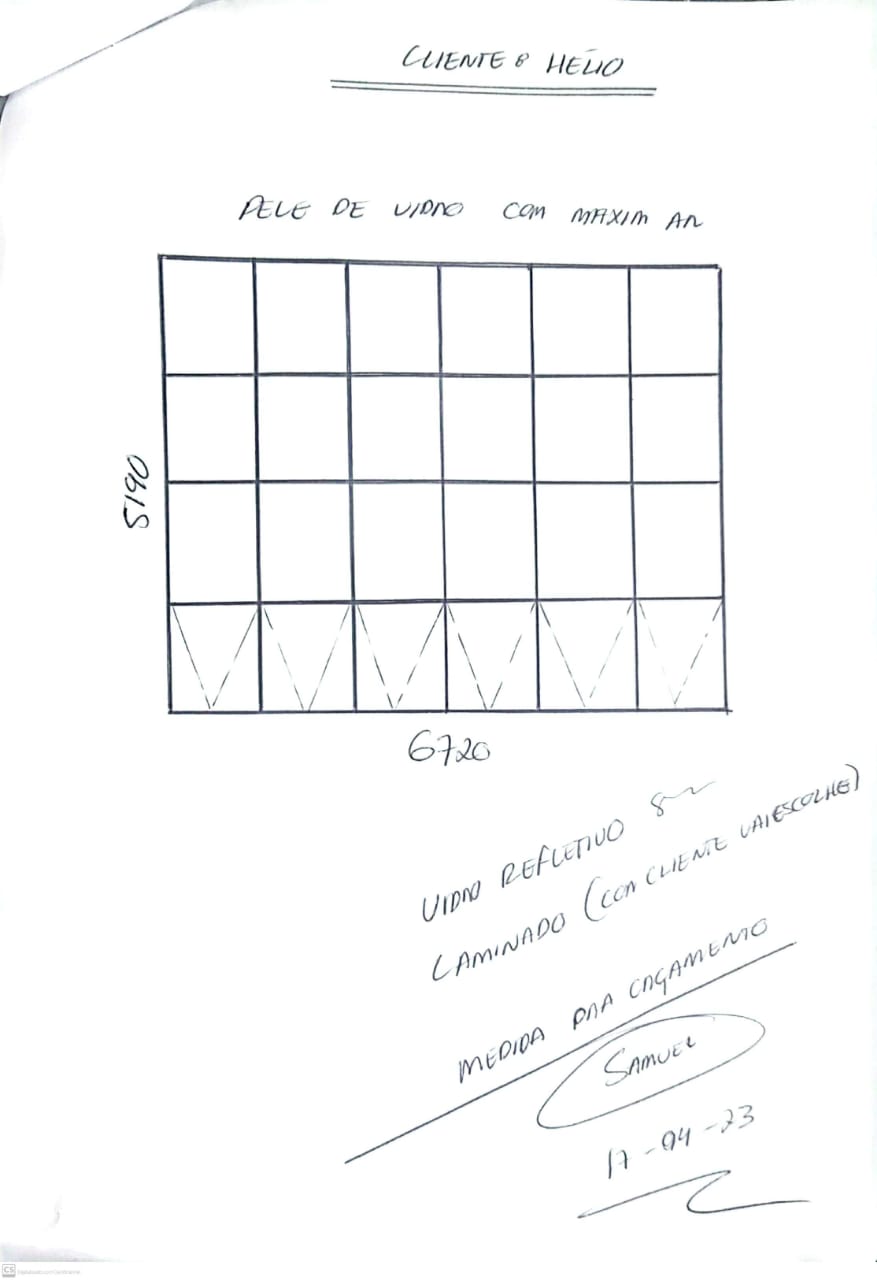 CLIENTE: HÉLIO
PELE DE VIDRO COM MAXIM AR
5190
6720
VIDRO REFLETIVO 8
LAMINADO (COR CLIENTE VAI ESCOLHE)
MEDIDA PARA ORÇAMENTO
SAMUEL
17-04-23
CS